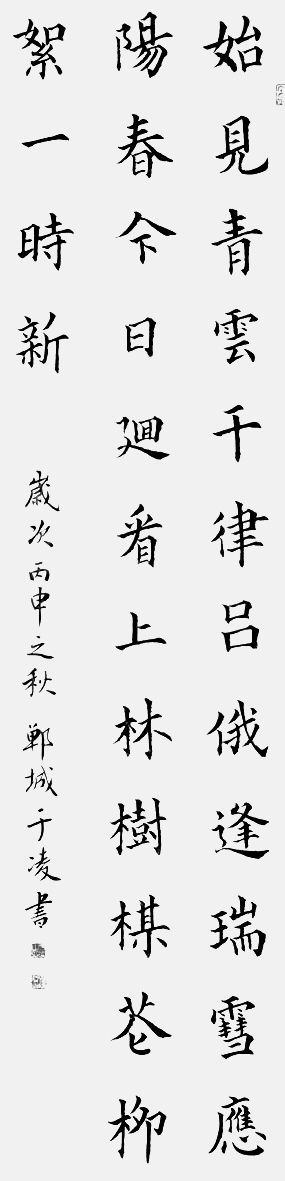 始見青雲千律呂俄逢瑞雪應
陽春今日廻看上林樹楳花柳
絮一時新
歲次丙申之秋 鄆城于凌書